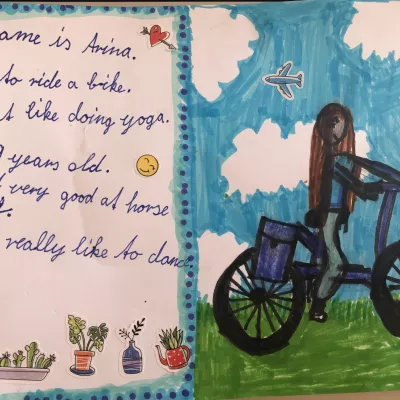 ame is Arina.
to ride a bike.
t like doing yoga.
9 years old.
very good at horse
really like to dance.